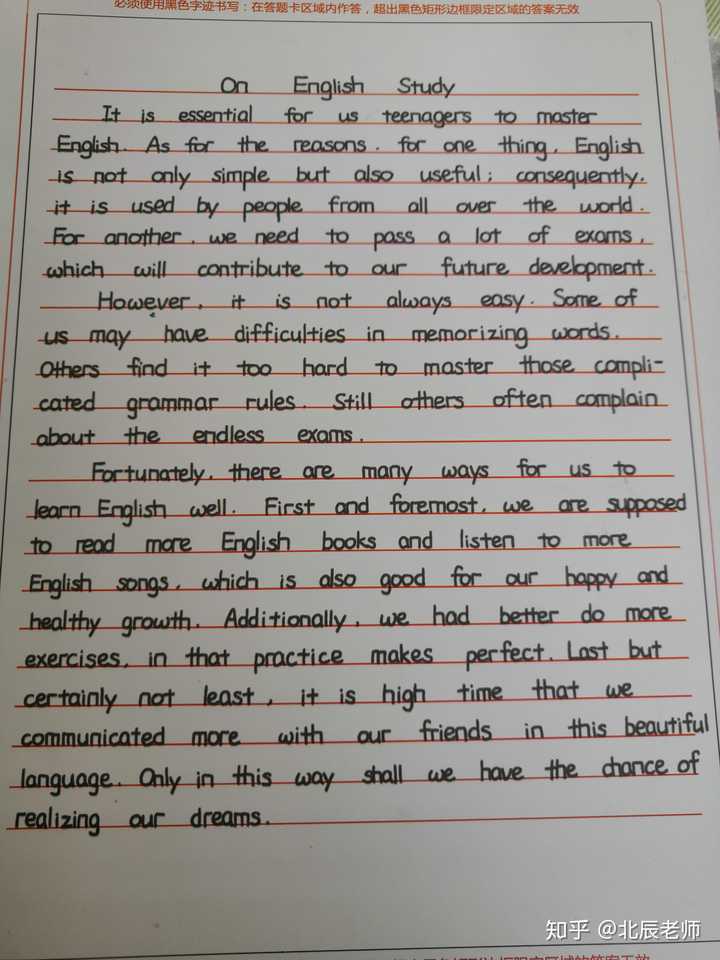 必须使用黑色字迹书写：在答题卡区域内作答，超出黑色矩形边框限定区域的答案无效
On English Study
It is essential for us teenagers to master
English. As for the reasons. for one thing, English
is not only simple but also useful; consequently,
it is used by people from all over the world.
For another, we need to pass a lot of exams,
which will contribute to our future development.
However, it is not always easy. Some of
us may have difficulties in memorizing words.
Others find it too hard to master those compli-
cated grammar rules. Still others often complain
about the endless exams.
Fortunately, there are many ways for us to
learn English well. First and foremost, we are supposed
to read more English books and listen to more
English songs, which is also good for our happy and
healthy growth. Additionally, we had better do more
exercises, in that practice makes perfect. Last but
certainly not least, it is high time that we
communicated more with our friends in this beautiful
language. Only in this way shall we have the chance of
realizing our dreams.
知乎 @北辰老师